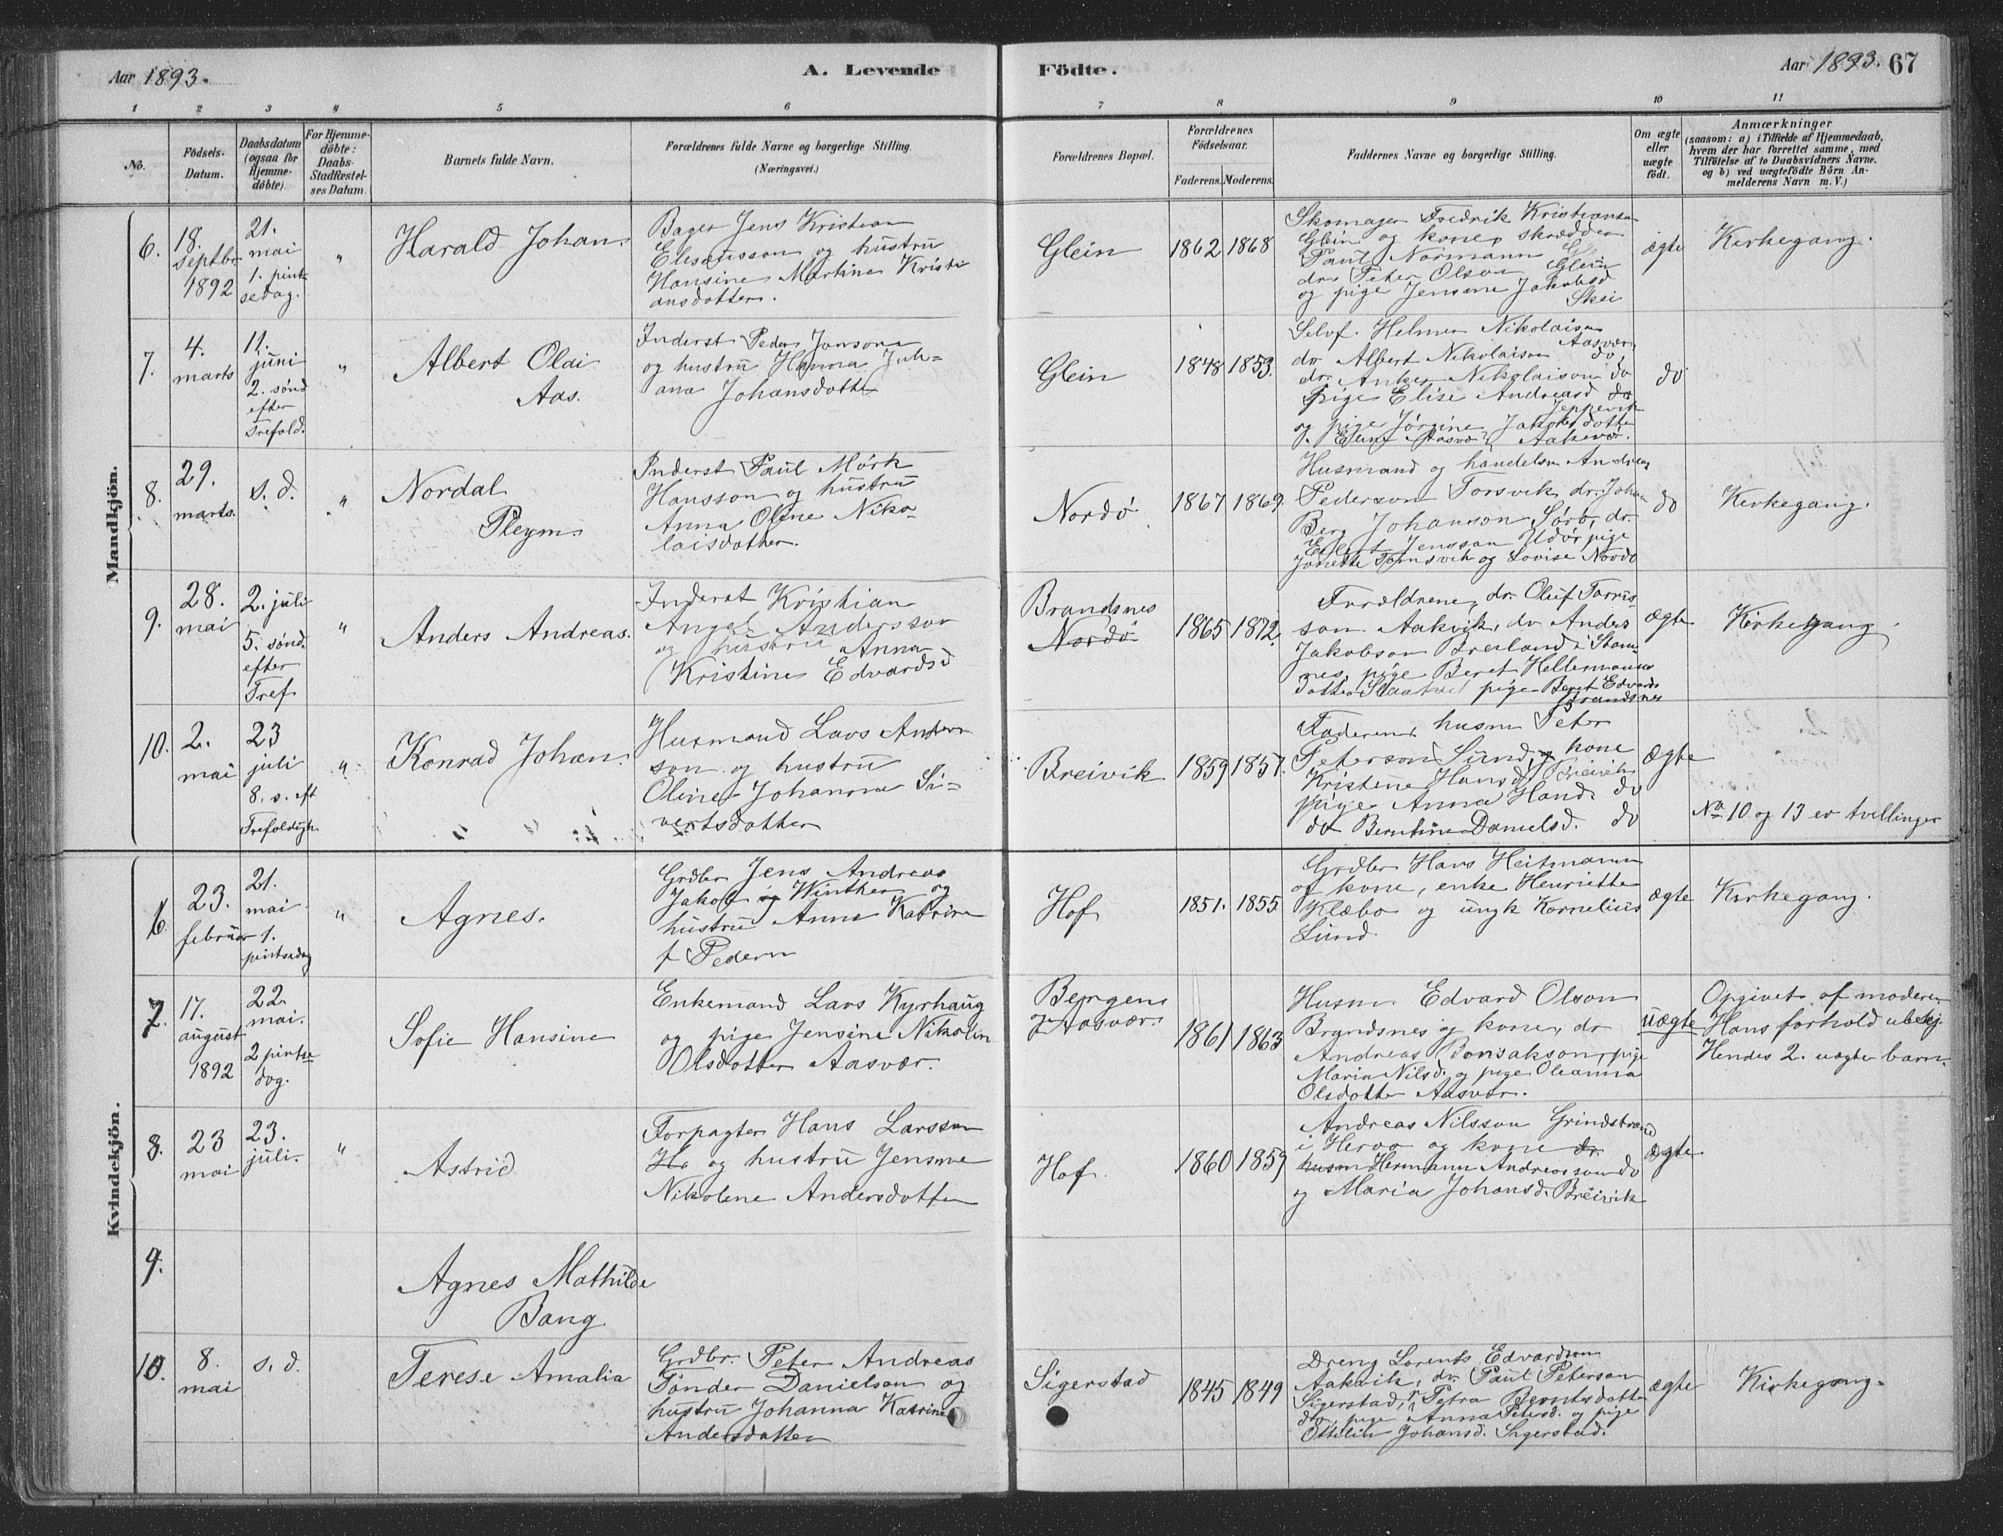 Aar 1893.
A. Levende
Födte.
Aar 1893. 67
1 2 3 4 5 6 7 8 9 10 11
No.
Födsels-
Datum.
Daabsdatum
(ogsaa for
Hjemme-
döbte).
For Hjemme-
döbte:
Daabs-
Stadfæstel-
ses Datum.
Barnets fulde Navn.
Forældrenes fulde Navne og borgerlige Stilling.
(Næringsvei.)
Forældrenes Bopæl.
Forældrenes
Födselsaar.
Faderens. Moderens.
Faddernes Navne og borgerlige Stilling.
Om ægte
eller
uægte
födt.
Anmærkninger
(saasom: a) i Tilfælde af Hjemmedaab,
hvem der har forrettet samme, med
Tilföielse af to Daabsvidners Navne.
og b) ved uægtefödte Börn An-
melderens Navn m. V.)
Mandkjön.
6.
18.
septbr
1892
21.
mai
1. pint-
sedag.
"
Harald Johan
Bager Jens Kristian
og hustru
Hansine Martine Kristi
ansdotter.
Glein
1862 1868
Skomager Fredrik Kristiansen
Glein og kone, skrædder
Paul Normann
dr. Peter Olson Glein
og pige Jensine Jakobsd
Skei
ægte
Kirkegang.
7.
4.
marts
11.
juni
2. sønd
efter
Trefold.
"
Albert Olai
Aas.
Inderst Peder Jonsona
og hustru Hanna Juli-
ana Johansdotter
Glein
1848 1853.
Selvf. Helmer Nikolaison
Aasvær
dr Albert Nikolaison do,
dr. Anker Nikolaison do
pige Elise Andreasd do
og pige Jørgine Jakobsdotter
do
8.
29.
marts.
s. d.
"
Nordal
Pleym.
Inderst Paul Mørk
Hansson og hustru
Anna Oline Niko-
laisdotter.
Nordø
1867 1869.
Husmand og handelsm Andreas
Pederson Torsvik, dr. Johan
Berg Johanson Sørø, dr.
Jensson pige
og Lovise Nordø
do
Kirkegang.
9.
28.
mai
2. juli
5. sønd.
efter
Tref
"
Anders Andreas.
Inderst Kristian
Angel Andersson
og hustru Anna
Kristine Edvardsd
Brandsnes
Nordø
1865 1872.
Forældrene, dr. Oluf Torris-
son Aakvik, dr Anders
Jakobson i Stam-
nes, pige Beret Hellemans
dotter pige Beret Edvards
Brandsnes
ægte
Kirkegang.
10.
2.
mai
23
juli
8. s. eft
Trefoldigh.
"
Konrad Johan.
Husmand Lars Anders
son og hustru
Oline Johanna Si-
vertsdotter
Breivik
1859 1857.
Faderen, husm Peter
Peterson Sund, og kone
Kristine Hansd. Breivik
pige Anna Hansd. do
do Berntine Danielsd. do
ægte
No 10 og 13 er tvillinger
Kvindekjön.
6
23.
februar
21.
mai
1.
pintsedag
"
Agnes.
Grdbr Jens Andreas
Jakob Winther og
hustru Anne Katrine
f Pedersen
Hof
1851. 1855
Grdbr Hans Heitmann
og kone, enke Henriette
Klæbo og ungk Kornelius
Sund.
ægte
Kirkegang.
7.
17.
august
1892
22.
mai.
2 pintse
dag.
Sofie Hansine
Enkemand Lars Kyrhaug
og pige Jensine Nikolin
Olsdotter Aasvær.
Bergen
og Aasvær.
1861 1863
Husm Edvard Olson
Brandsnes og kone, dr
Andreas Bonsakson, pige
Maria Nilsd. og pige Oleanna
Olsdotter Aasvær.
uægte
Opgivet af moderen
Hans forhold ubekj.
Hendes 2. uægte barn.
8.
23
mai
23.
juli.
"
Astrid
Forpagter Hans Larsson
Ho og hustru Jensine
Nikolene Andersdotter
Hof.
1860 1859
Andreas Nilsson Grindstrand
i Hervø og kone dr.
husm Hermann Andreasson do
og Maria Johansd. Breivik
ægte
9.
Agnes Mathilde
Bang.
10.
8.
mai
s. d.
Terese Amalia
Grdbr. Peter Andreas
Tønder Danielson og
hustru Johanna Katrine
Andersdotter
Sigerstad
1845 1849
Dreng Lorents Edvardson
Aakvik, dr. Paul Peterson
Sigerstad, Petra Berntsdotter
do, pige Anna Petersd. og pige
Ottelin Johansd. Sigerstad.
ægte
Kirkegang.